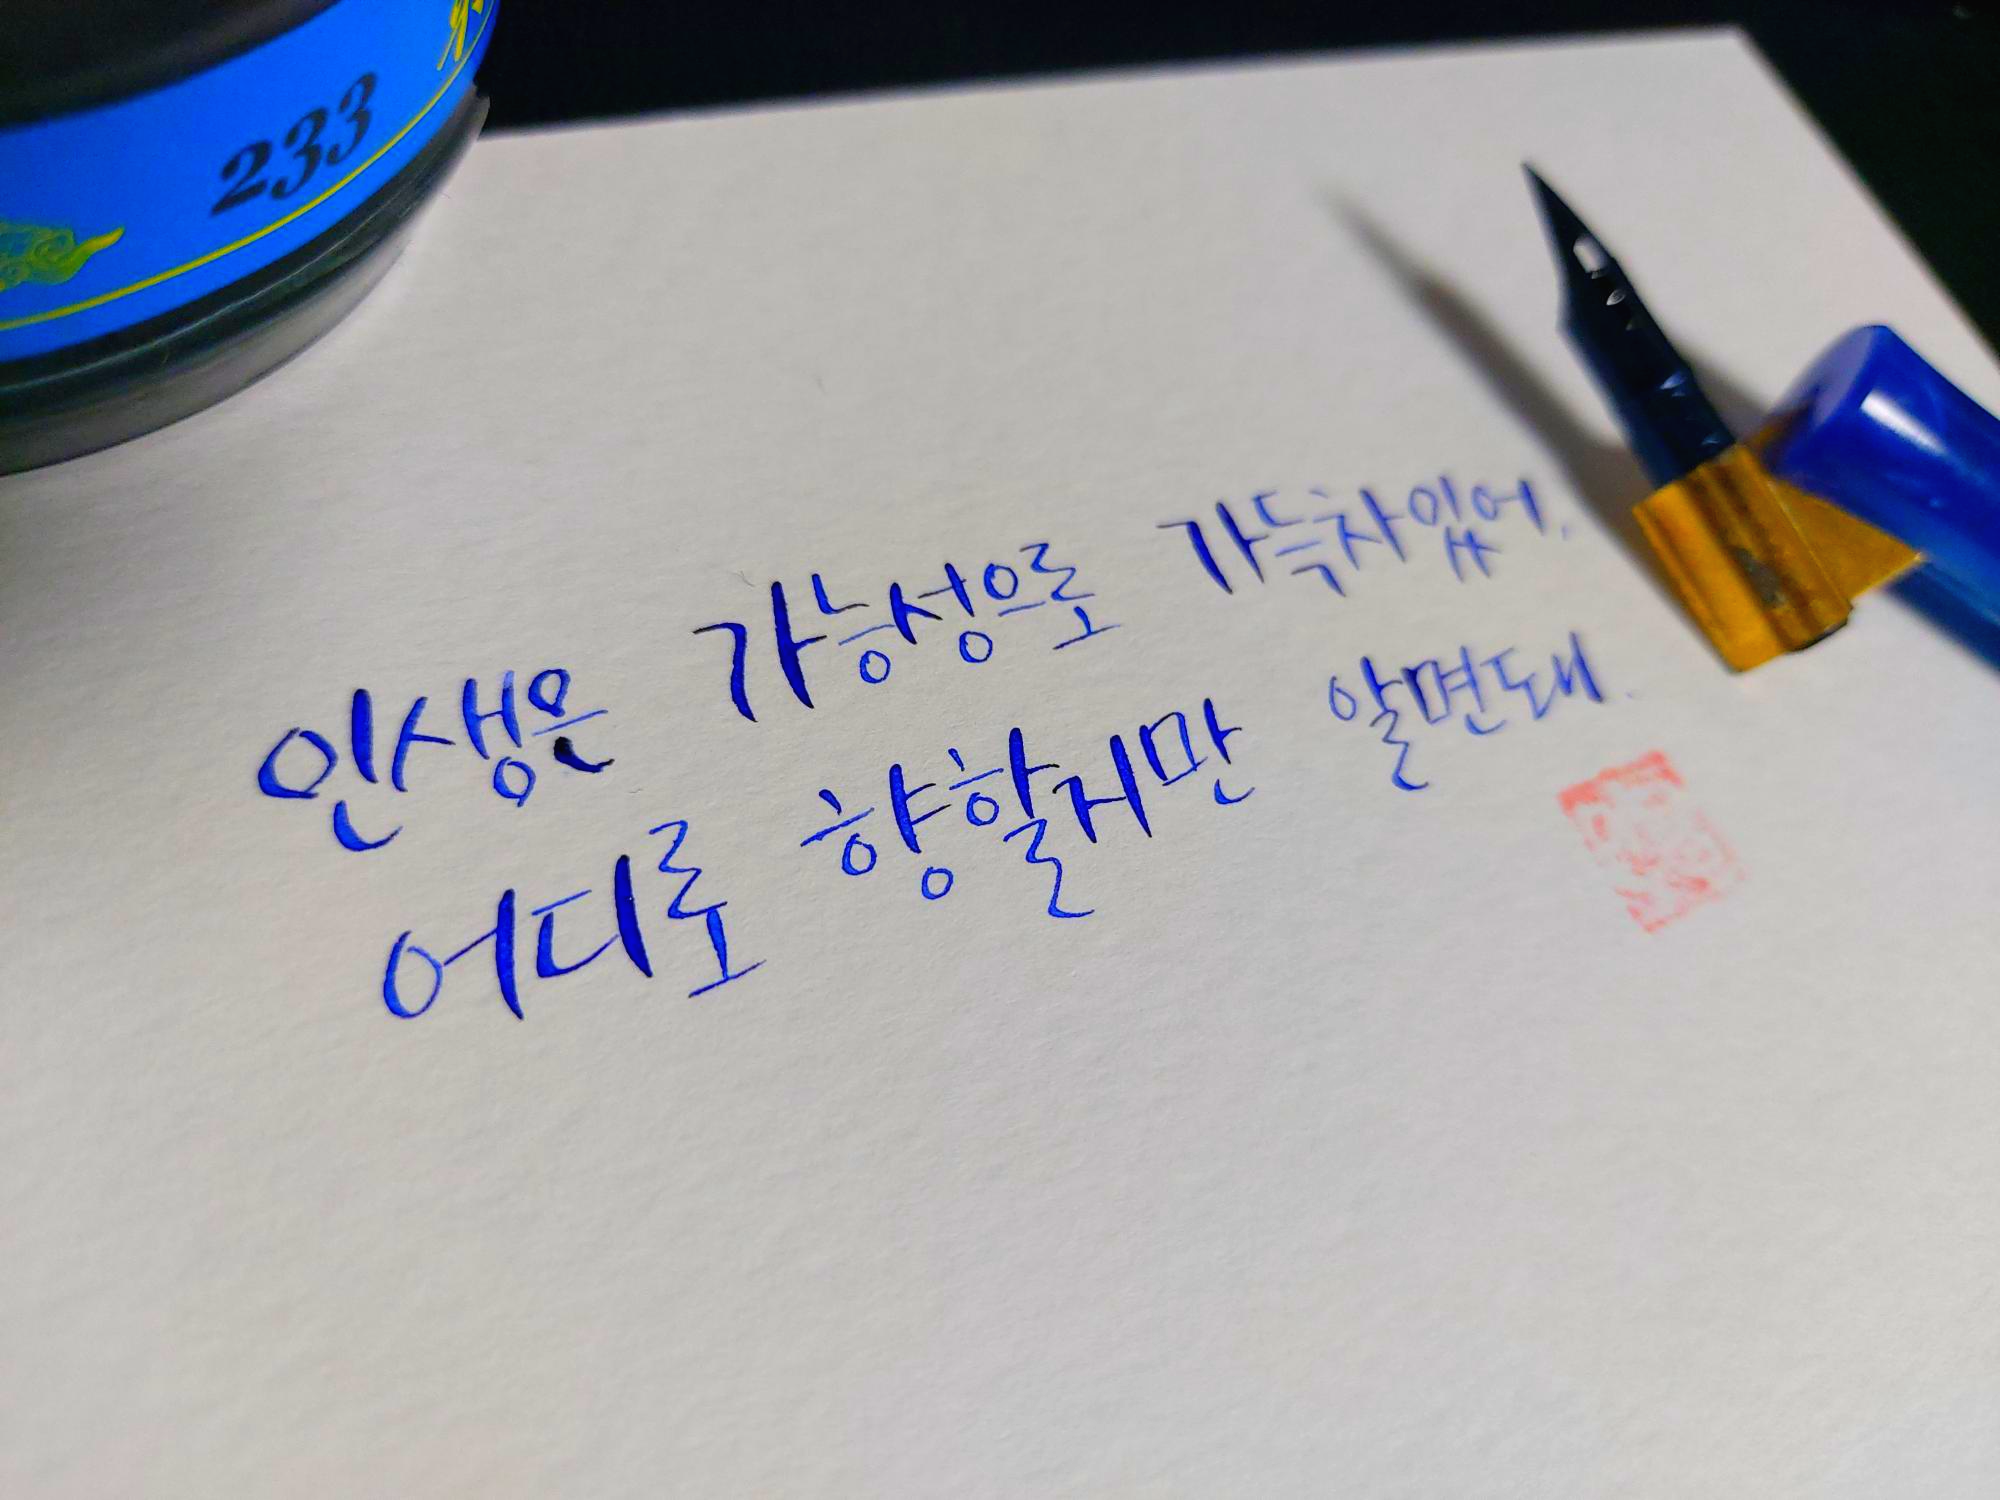 233
인생은 가능성으로 가득차있어.
어디로 향할지만 알면돼.